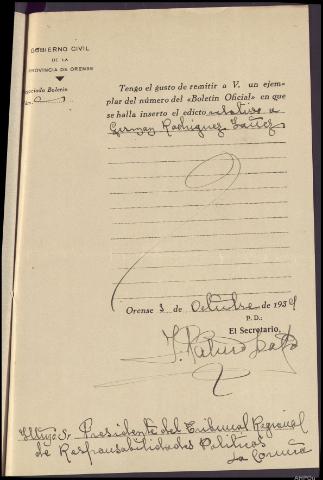 GOBIERNO CIVIL
DE LA
PROVINCIA DE ORENSE
Negociado Boletín
Tengo el gusto de remitir a V. un ejem-
plar del número del «Boletín Oficial» en que
se halla inserto el edicto relativo a
German Rodriguez Yañez
Orense 3 de Octubre de 1939
P. D.:
El Secretario,
Iltmo. Sr. Presidente del Tribunal Regional
de Responsabilidades Politicas
La Coruña
AHPOU